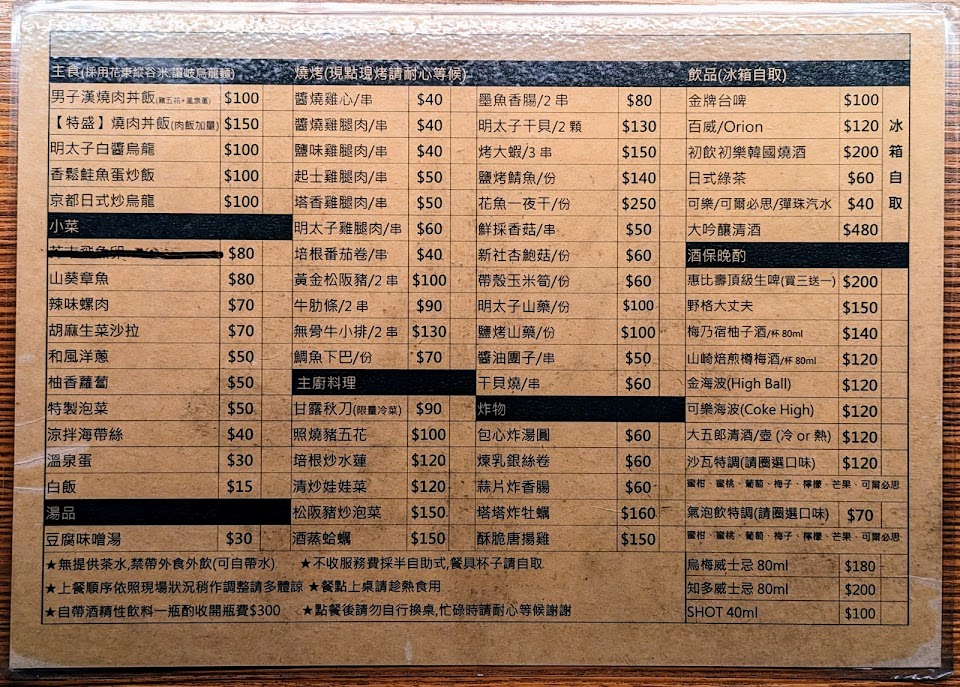 主食(採用花東縱谷米,讚岐烏龍麵)
男子漢燒肉丼飯(豬五花+溫泉蛋) $100
【特盛】燒肉丼飯(肉飯加量) $150
明太子白醬烏龍 $100
香鬆鮭魚蛋炒飯 $100
京都日式炒烏龍 $100
小菜
$80
山葵章魚 $80
辣味螺肉 $70
胡麻生菜沙拉 $70
和風洋蔥 $50
柚香蘿蔔 $50
特製泡菜 $50
涼拌海帶絲 $40
溫泉蛋 $30
白飯 $15
湯品
豆腐味噌湯 $30
燒烤(現點現烤請耐心等候)
醬燒雞心/串 $40
醬燒雞腿肉/串 $40
鹽味雞腿肉/串 $40
起士雞腿肉/串 $50
塔香雞腿肉/串 $50
明太子雞腿肉/串 $60
培根番茄卷/串 $40
黃金松阪豬/2 串 $100
牛肋條/2 串 $90
無骨牛小排/2 串 $130
鯛魚下巴/份 $70
主廚料理
甘露秋刀(限量冷菜) $90
照燒豬五花 $100
培根炒水蓮 $120
清炒娃娃菜 $120
松阪豬炒泡菜 $150
酒蒸蛤蠣 $150
墨魚香腸/2 串 $80
明太子干貝/2 顆 $130
烤大蝦/3 串 $150
鹽烤鯖魚/份 $140
花魚一夜干/份 $250
鮮採香菇/串 $50
新社杏鮑菇/份 $60
帶殼玉米筍/份 $60
明太子山藥/份 $100
鹽烤山藥/份 $100
醬油團子/串 $50
干貝燒/串 $60
炸物
包心炸湯圓 $60
煉乳銀絲卷 $60
蒜片炸香腸 $60
塔塔炸牡蠣 $160
酥脆唐揚雞 $150
飲品(冰箱自取)
金牌台啤 $100
百威/Orion $120
初飲初樂韓國燒酒 $200
日式綠茶 $60
可樂/可爾必思/彈珠汽水 $40
大吟釀清酒 $480
冰
箱
自
取
酒保晚酌
惠比壽頂級生啤(買三送一) $200
野格大丈夫 $150
梅乃宿柚子酒/杯 80ml $140
山崎焙煎樽梅酒/杯 80ml $120
金海波(High Ball) $120
可樂海波(Coke High) $120
大五郎清酒/壺 (冷 or 熱) $120
沙瓦特調(請圈選口味) $120
蜜柑、蜜桃、葡萄、梅子、檸檬、芒果、可爾必思
氣泡飲特調(請圈選口味) $70
蜜柑、蜜桃、葡萄、梅子、檸檬、芒果、可爾必思
烏梅威士忌 80ml $180
知多威士忌 80ml $200
SHOT 40ml $100
★無提供茶水,禁帶外食外飲(可自帶水) ★不收服務費採半自助式,餐具杯子請自取
★上餐順序依照現場狀況稍作調整請多體諒 ★餐點上桌請趁熱食用
★自帶酒精性飲料一瓶酌收開瓶費$300 ★點餐後請勿自行換桌,忙碌時請耐心等候謝謝